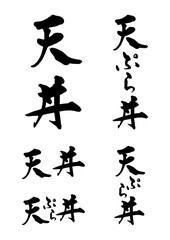 天丼
天ぷら丼
天丼
天ぷら丼
天ぷら丼